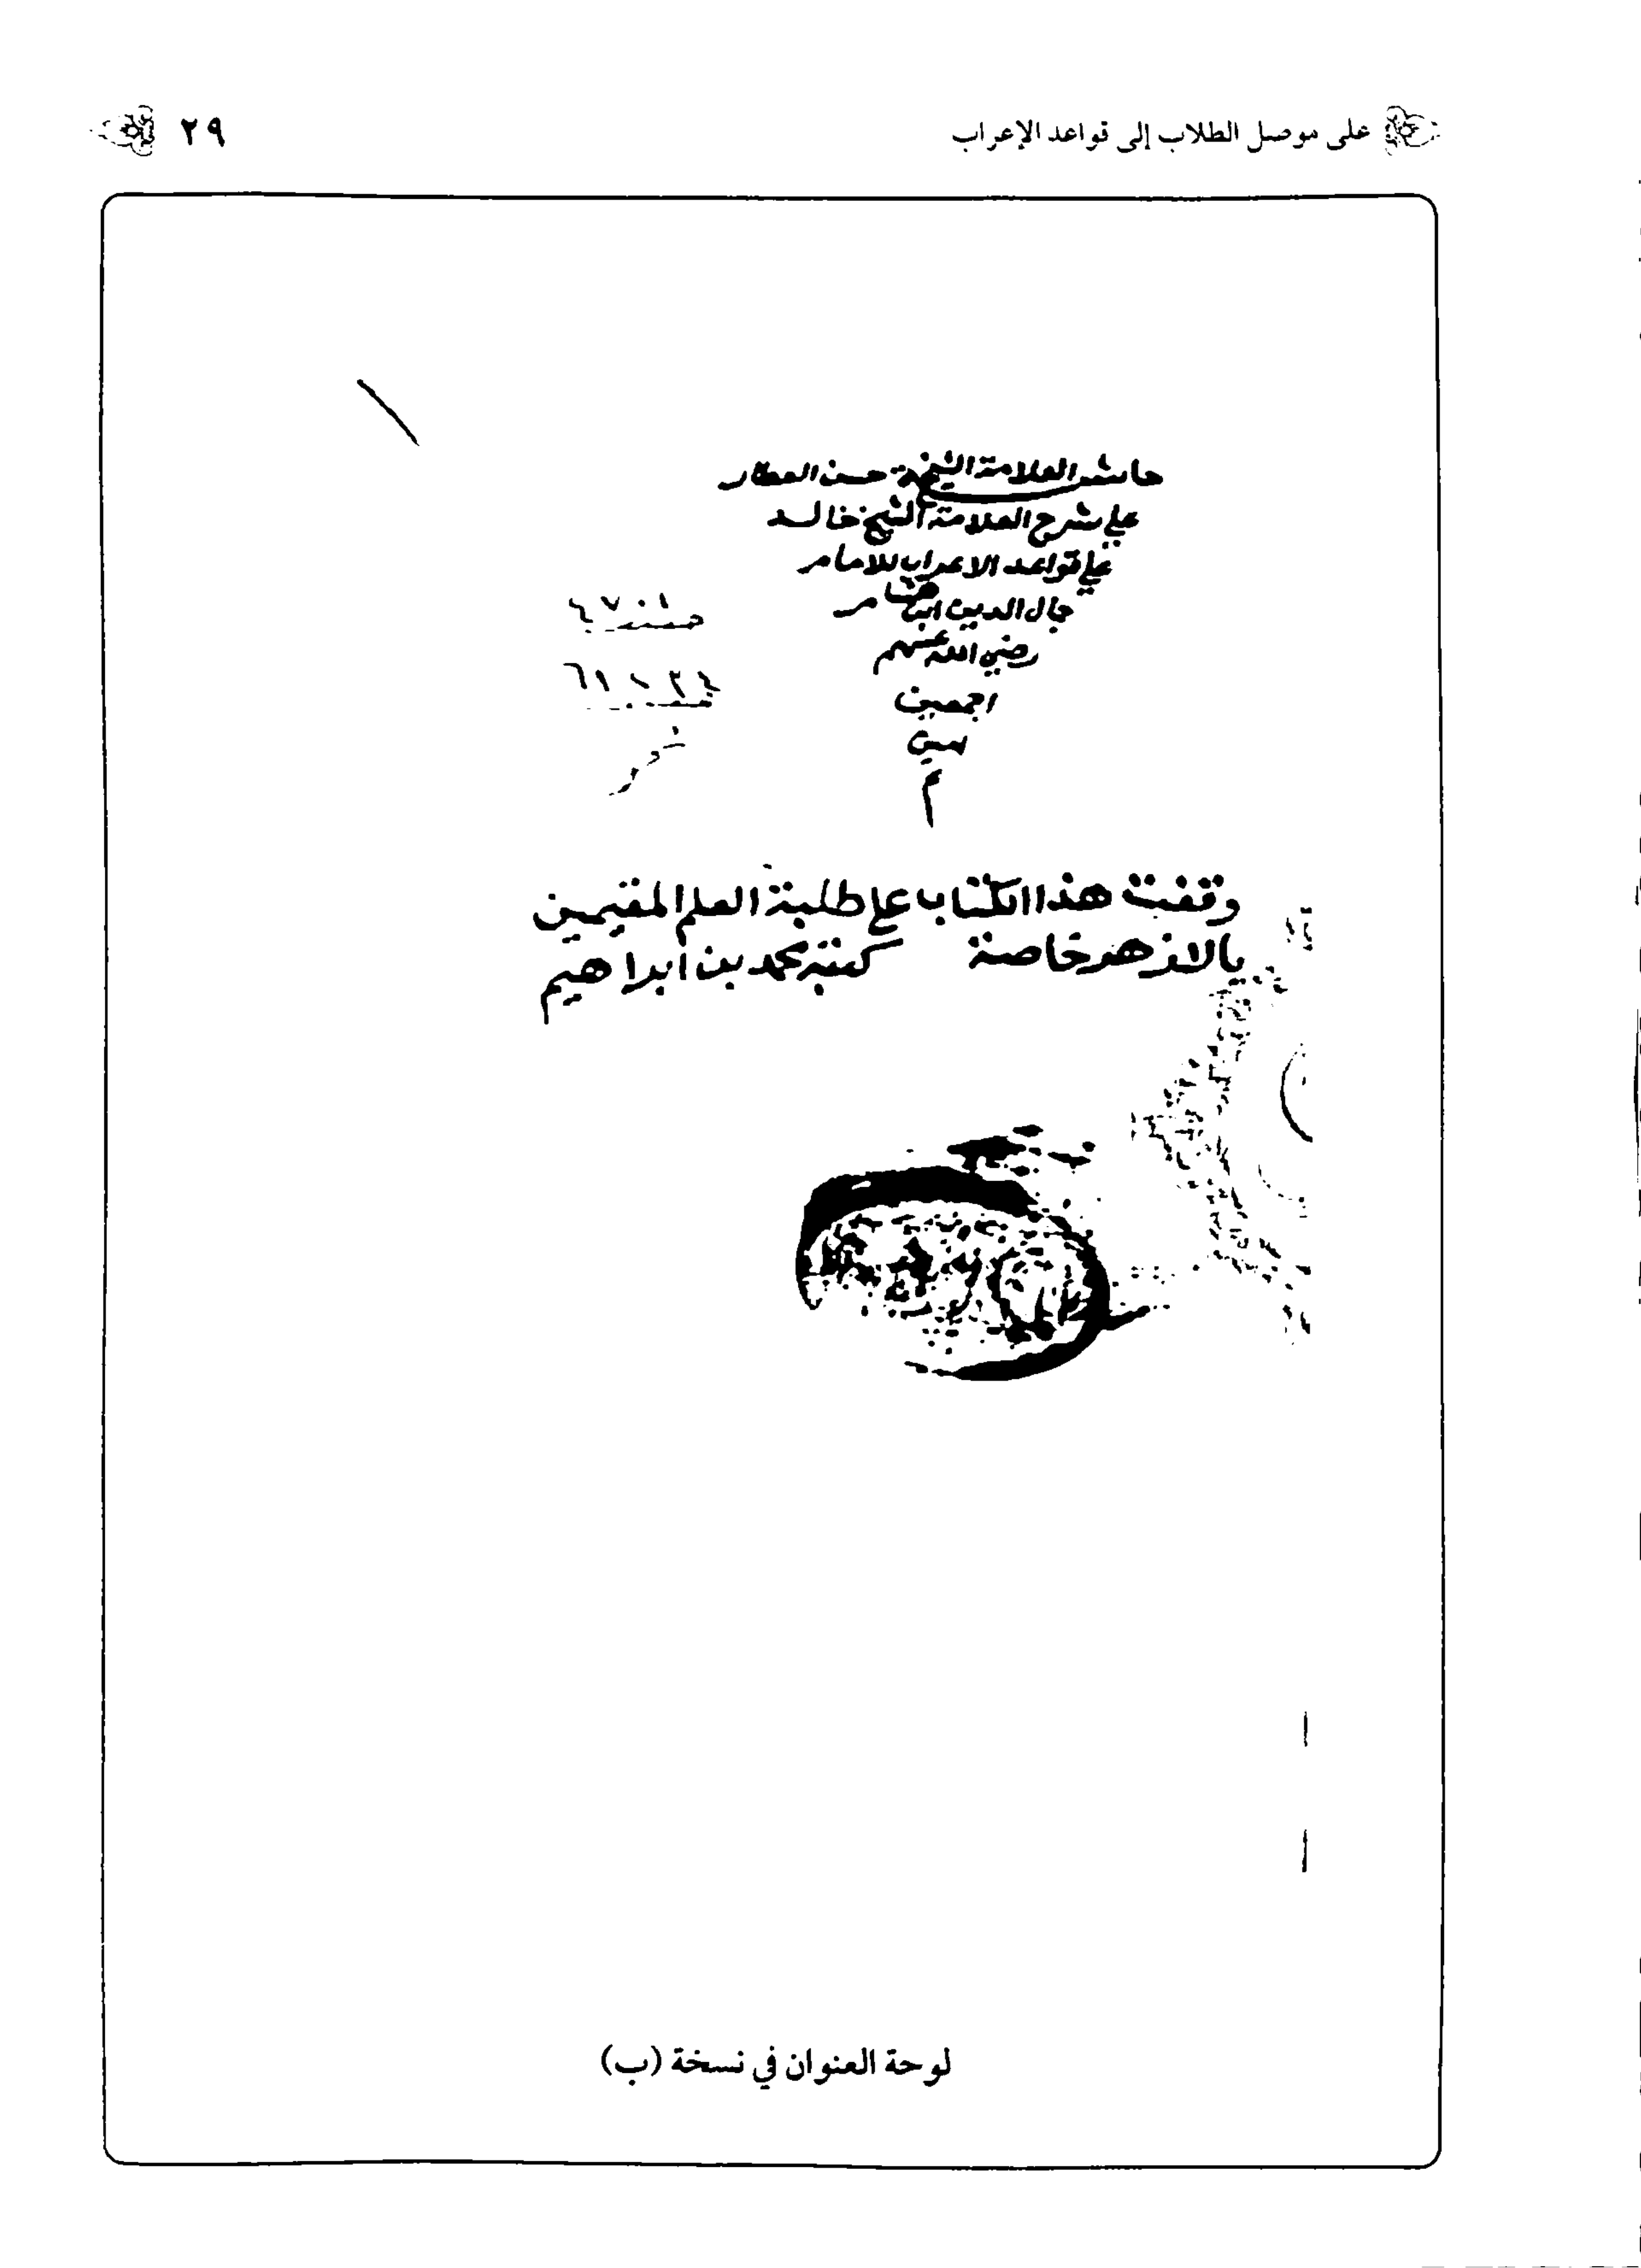 على موصل الطلاب إلى قواعد الإعراب
٢٩
حاشية العلامة الشيخ حسن العطار
علي شرح العلامة الشيخ خالد
علي قواعد الاعراب للامام
جمال الدين ابن هشام
رضي الله عنهم
اجمعين
امين
م
وقفت هذا الكتاب علي طلبة العلم المقيمين
بالازهر خاصة كتبه محمد بن ابراهيم
لوحة العنوان في نسخة (ب)